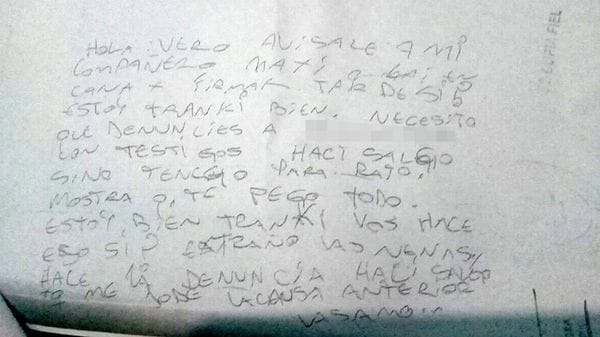 HOLA VERO AVISALE A MI
COMPAÑERO MAXI Q CAI EN
CANA X FIRMAR TARDE SI
ESTOY TRANKI BIEN. NECESITO
QUE DENUNCIES A
CON TESTIGOS HACI SALGO
SINO TENGO PARA RATO,
MOSTRA Q TE PEGO TODO.
ESTOY BIEN TRANKI VOS HACE
ESO SI EXTRAÑO LAS NENAS,
HACE LA DENUNCIA HACI SALGO
Q ME JODE LA CAUSA ANTERIOR
FIEL